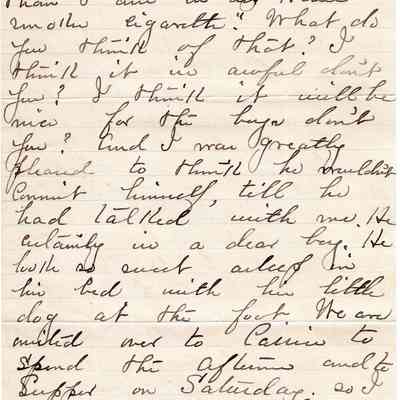 than I am in
smoke cigarette". What do
you think of that? I
think it is awful don't
you? I think it will be
nice for the boys don't
you? And I was greatly
pleased to think he wouldn't
commit himself, till he
had talked with me. He
certainly is a dear boy. He
looks so sweet asleep in
his bed with his little
dog at the foot We are
invited over to Carrie to
spend the afternoon and to
supper on Saturday. so I